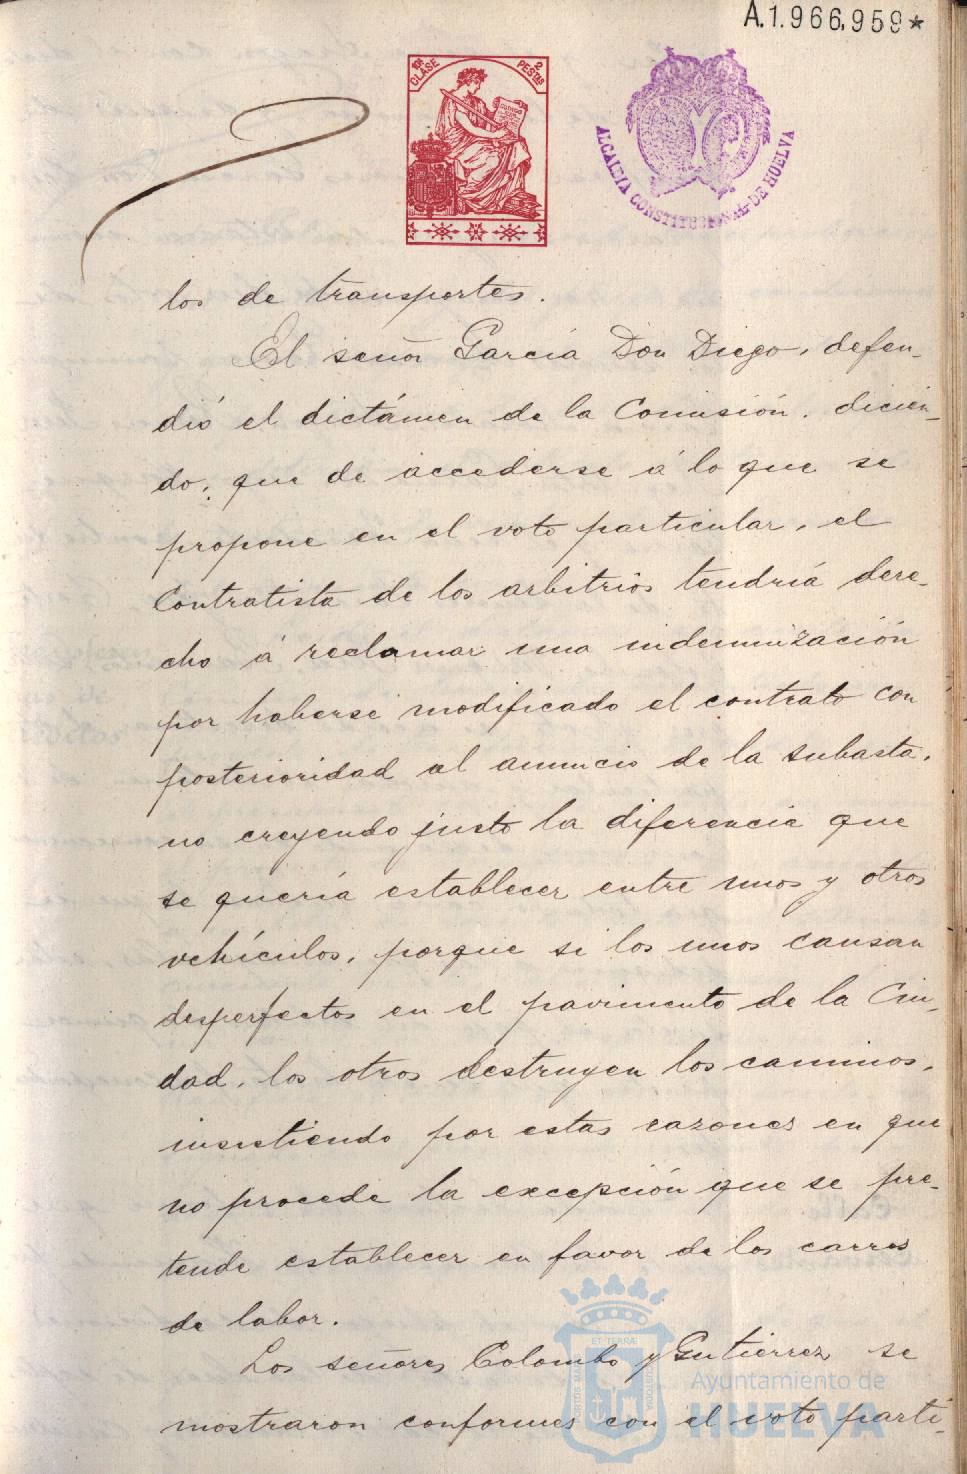 A.1.966,959*
10ª CLASE
2 PESTAS
ALCALDIA CONSTITUCIONAL DE HUELVA
los de transportes.
El señor García Don Diego, defen-
dió el dictámen de la Comisión, dicien-
do, que de accederse á lo que se
propone en el voto particular, el
Contratista de los arbitrios tendría dere-
cho á reclamar una indemnización
por haberse modificado el contrato con
posterioridad al anuncio de la subasta,
no creyendo justo la diferencia que
se quería establecer entre unos y otros
vehículos, porque si los unos causan
desperfectos en el pavimento de la Ciu-
dad, los otros destruyen los caminos,
insistiendo por estas razones en que
no procede la excepción que se pre-
tende establecer en favor de los carros
de labor.
Los señores Colombo y Gutierrez se
mostraron conformes con el voto parti-
ET TERRÆ
PORTUS MARIS
CUSTODIA
Ayuntamiento de
HUELVA